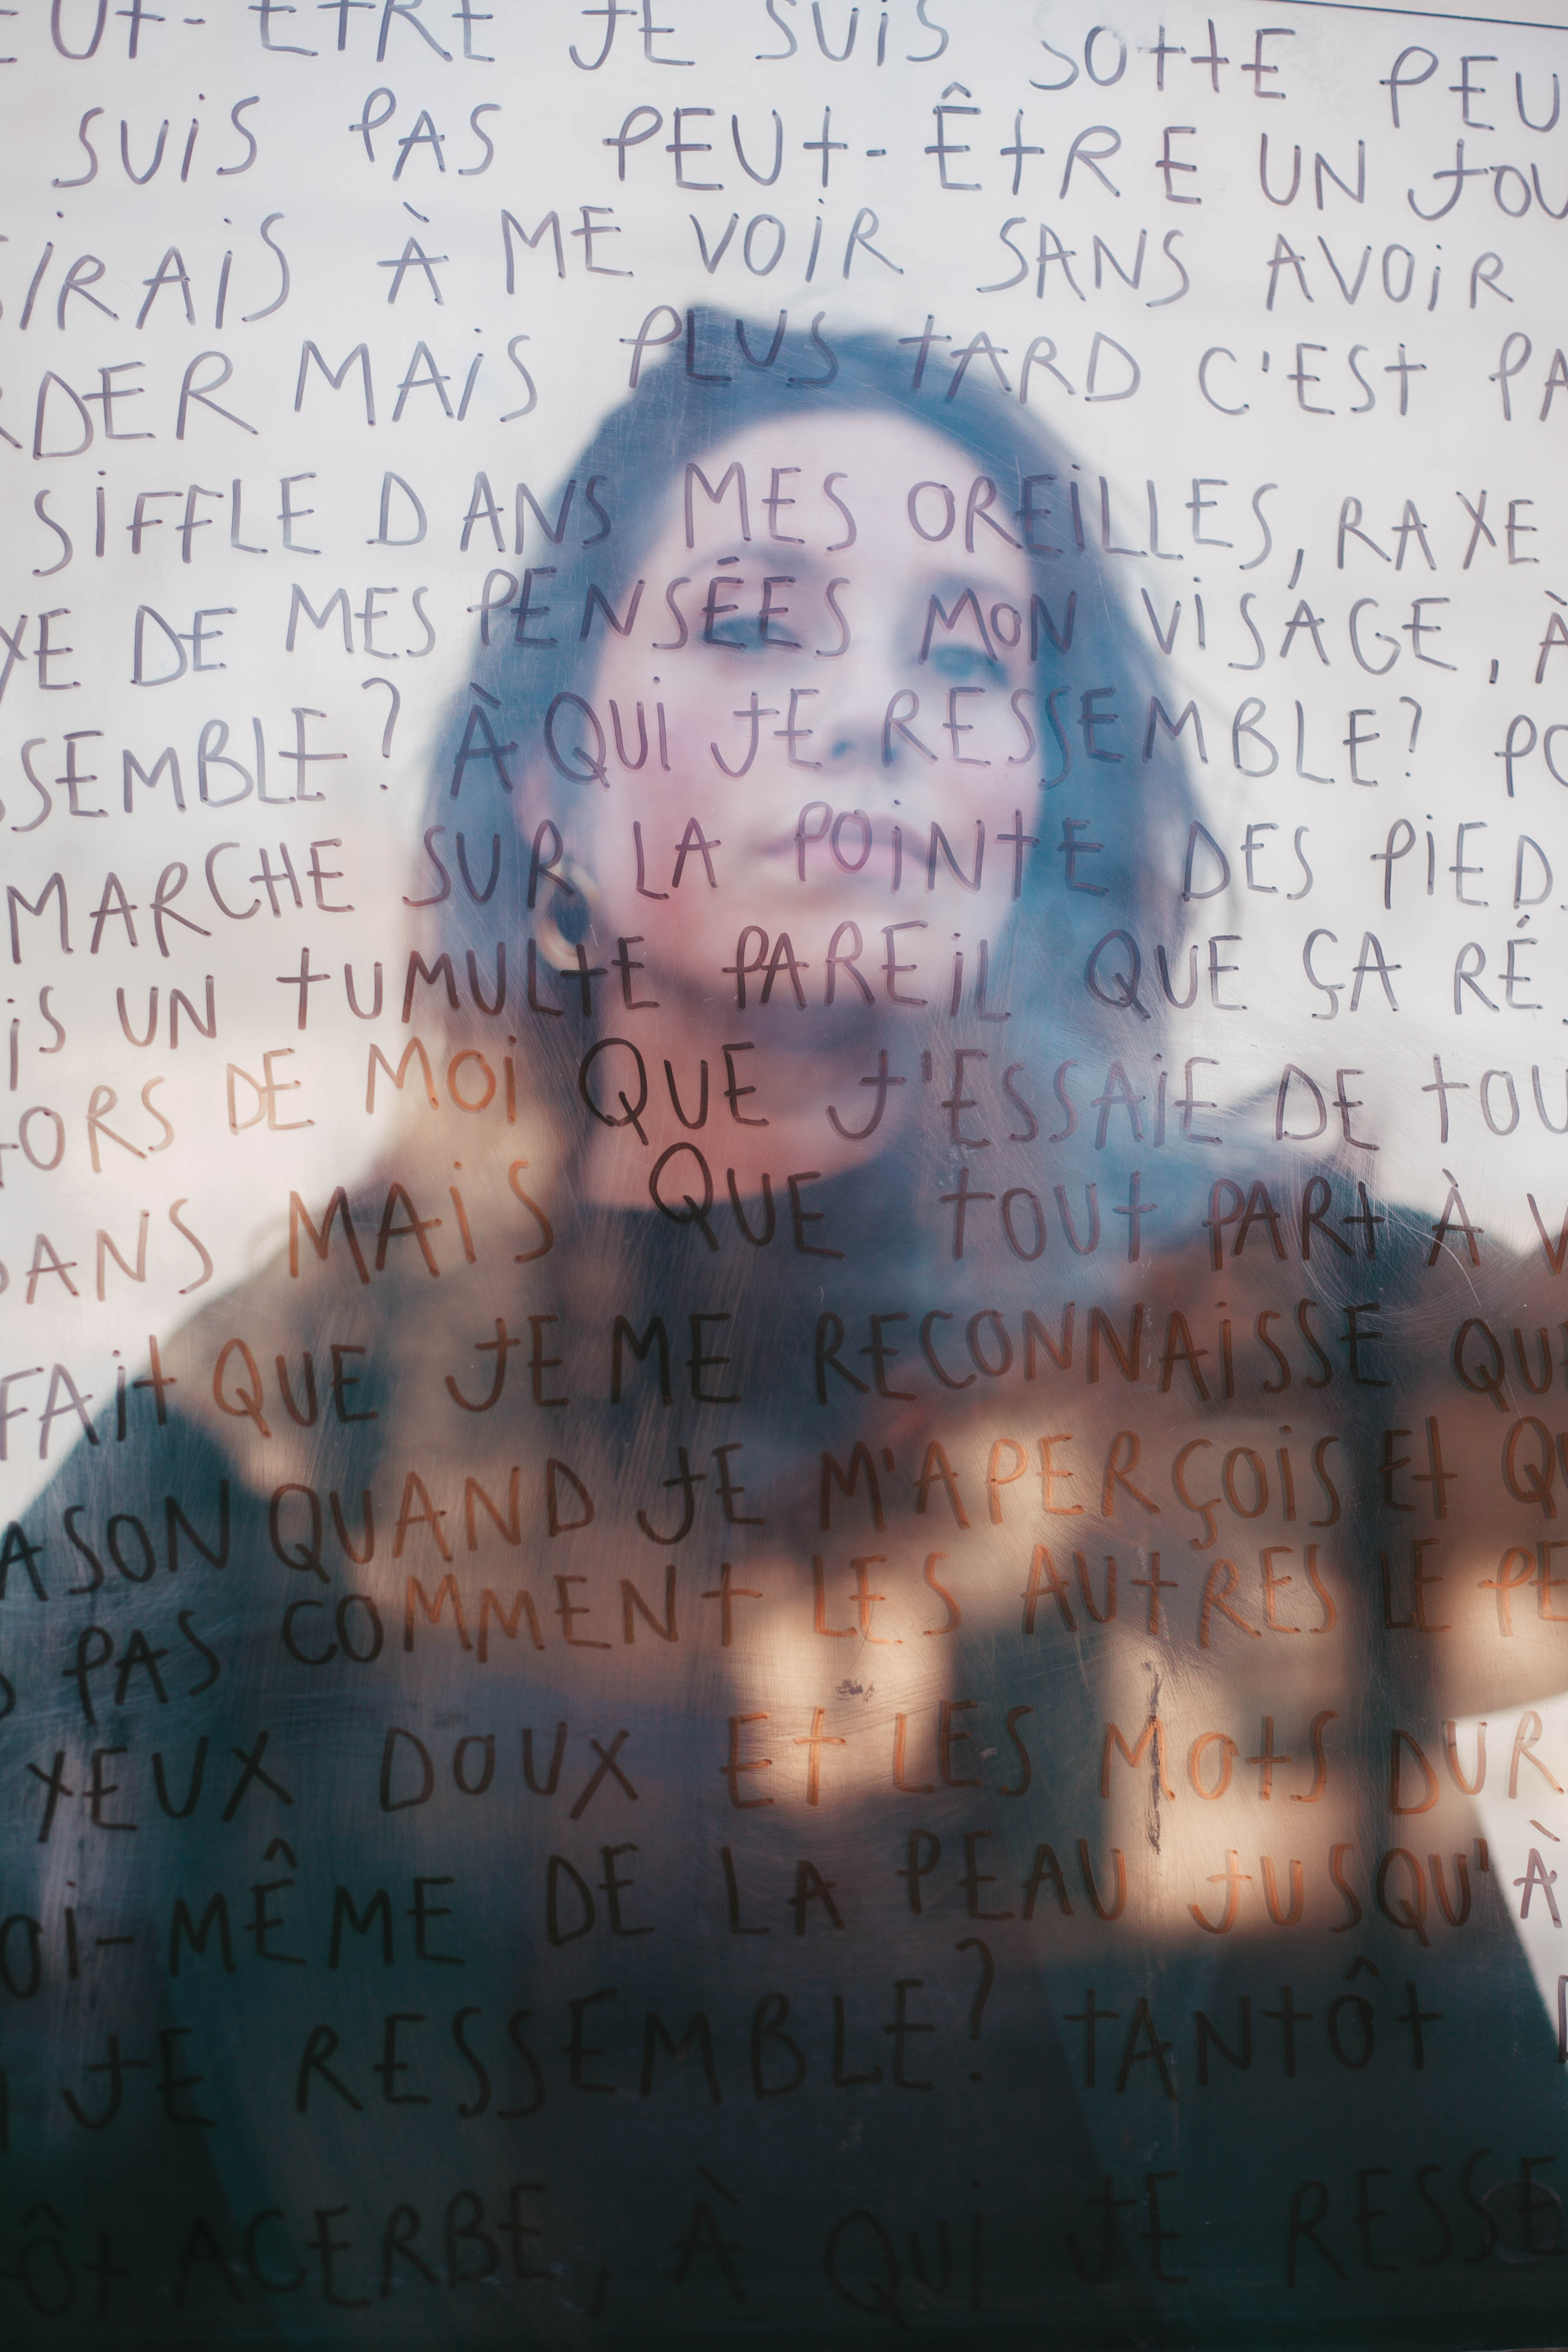 EUT-ÊTRE JE SUIS SOTTE PEU
SUIS PAS PEUT-ÊTRE UN JOU
SIRAIS À ME VOIR SANS AVOIR
RDER MAIS PLUS TARD C'EST PA
SIFFLE DANS MES OREILLES, RAYE
YE DE MES PENSÉES MON VISAGE, À
SSEMBLE? À QUI JE RESSEMBLE? PO
MARCHE SUR LA POINTE DES PIED
IS UN TUMULTE PAREIL QUE ÇA RÉ
HORS DE MOI QUE J'ESSAIE DE TOU
DANS MAIS QUE TOUT PART À V
FAIT QUE JE ME RECONNAISSE QUE
ASON QUAND JE M'APERÇOIS ET QU
PAS COMMENT LES AUTRES LE PE
YEUX DOUX ET LES MOTS DUR
OI-MÊME DE LA PEAU JUSQU'À
I JE RESSEMBLE? TANTÔT D
ÔT ACERBE, À QUI JE RESSE